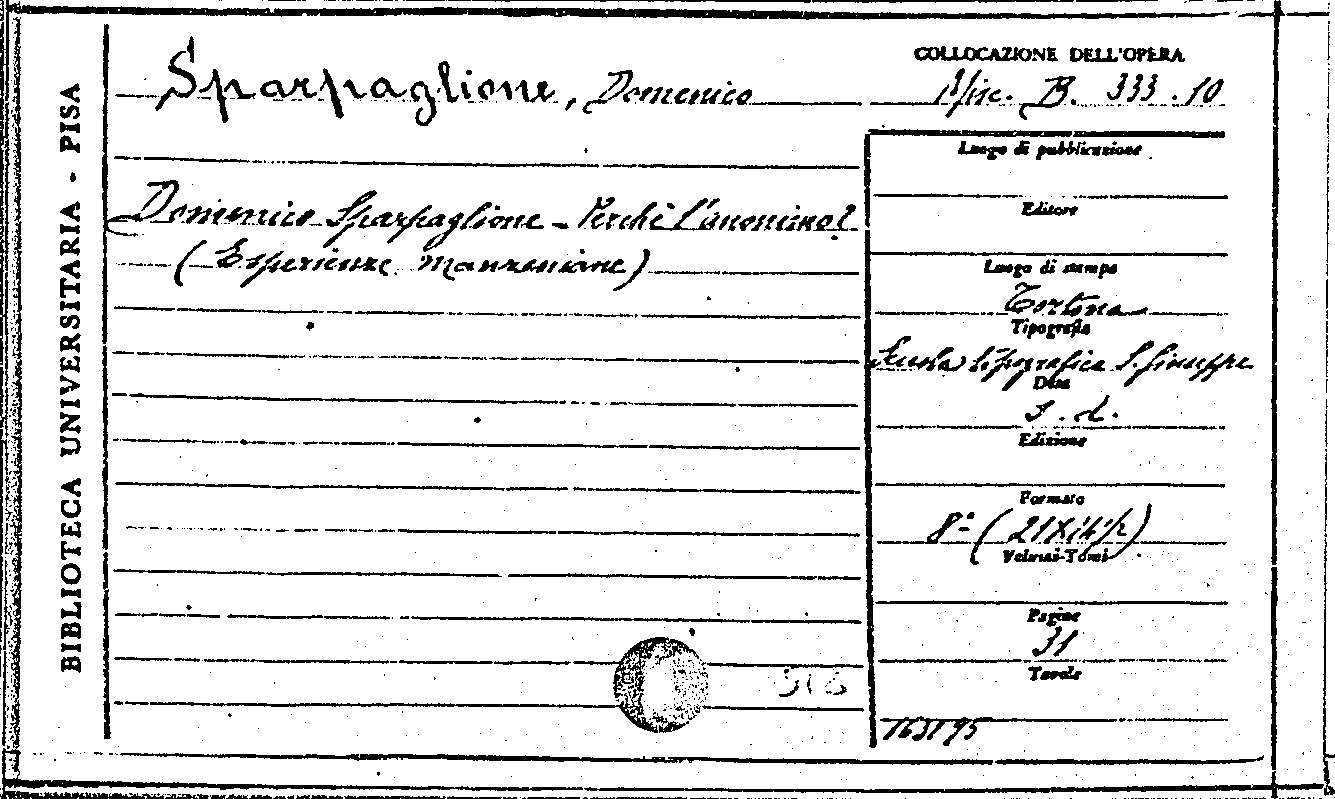 BIBLIOTECA UNIVERSITARIA - PISA
Sparpaglione, Domenico
Domenico Sparpaglione - Perchè l'anonimo?
(Esperienze manzoniane)
COLLOCAZIONE DELL'OPERA
Misc. B. 333.10
Luogo di pubblicazione
Editore
Luogo di stampa
Tortona
Tipografia
Scuola tipografica S. Giuseppe
Data
s.d.
Edizione
Formato
8º (21X
Volumi-Tomi
Pagine
31
Tavole
163195